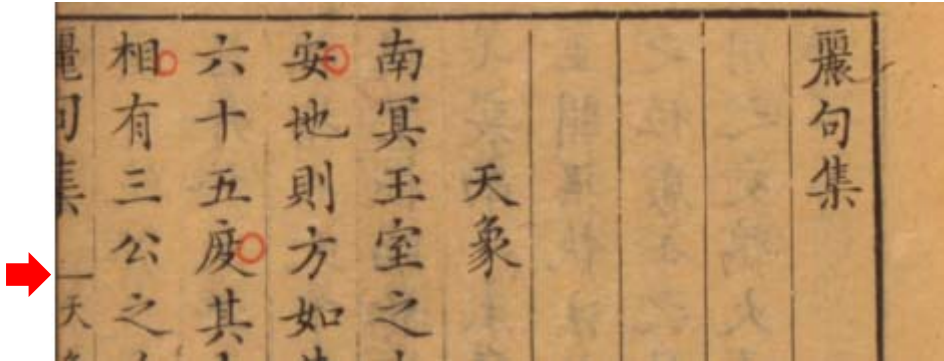 麗句集
天象
南冥玉室之
安地則方如
六十五度其
相有三公之
麗句集 一天